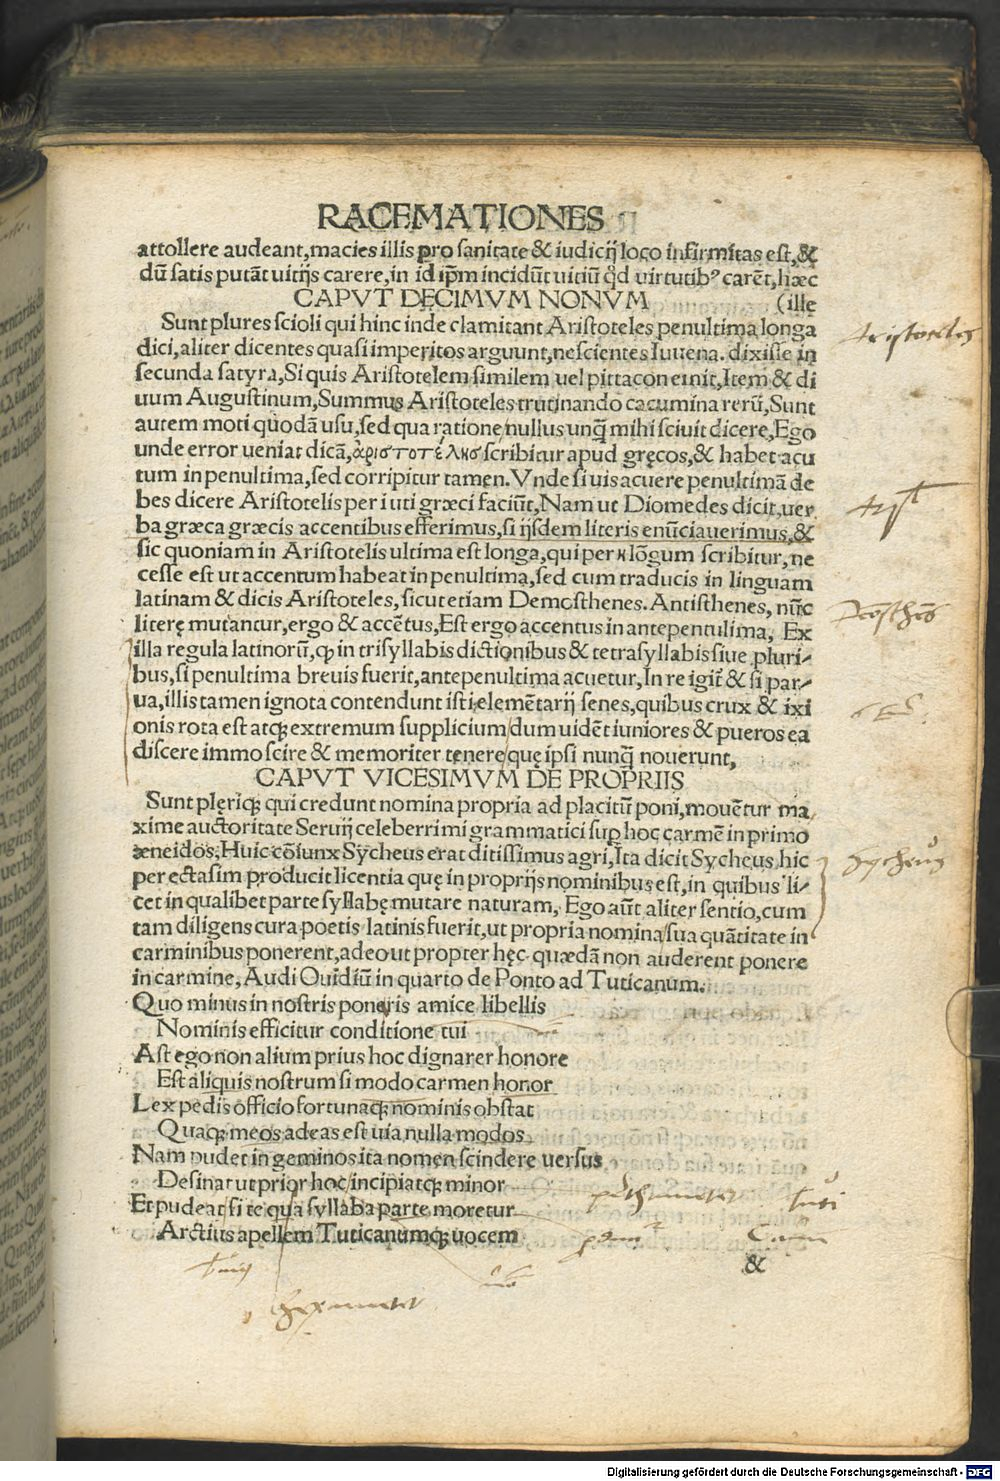 RACEMATIONES
attollere audeant,macies illis pro sanitate & iudicij loco infirmitas est,&
dū satis putāt uitijs carere,in id ip̄m incidūt uitiū q̄d uirtutibꝰ carēt,hæc
CAPVT DECIMVM NONVM (ille
Sunt plures scioli qui hinc inde clamitant Aristoteles penultima longa
dici,aliter dicentes quasi imperitos arguunt,nescientes Iuuena. dixisse in
secunda satyra,Si quis Aristotelem similem uel pittacon emit,Item & di
uum Augustinum,Summus Aristoteles trutinando cacumina rerū,Sunt
autem moti quodā usu,sed qua ratione nullus unq̄ mihi sciuit dicere,Ego
unde error ueniat dicā,ἀριστοτέλησ scribitur apud gręcos,& habet acu
tum in penultima,sed corripitur tamen. Vnde si uis acuere penultimā de
bes dicere Aristotelis per i uti græci faciūt,Nam ut Diomedes dicit,uer
ba græca græcis accentibus efferimus,si ijsdem literis enūciauerimus,&
sic quoniam in Aristotelis ultima est longa,qui per η lōgum scribitur,ne
cesse est ut accentum habeat in penultima,sed cum traducis in linguam
latinam & dicis Aristoteles,sicut etiam Demosthenes. Antisthenes, nūc
literę mutantur,ergo & accētus,Est ergo accentus in antepenulima, Ex
illa regula latinorū,ꝙ in trisyllabis dictionibus & tetrasyllabis siue pluri-
bus,si penultima breuis fuerit,antepenultima acuetur,In re igit̄ & si par-
ua,illis tamen ignota contendunt isti elemētarij senes,quibus crux & ixi
onis rota est atqꝫ extremum supplicium dum uidēt iuniores & pueros ea
discere immo scire & memoriter tenere quę ipsi nunq̄ nouerunt,
CAPVT VICESIMVM DE PROPRIIS
Sunt plęriqꝫ qui credunt nomina propria ad placitū poni,mouētur ma
xime auctoritate Seruij celeberrimi grammatici sup hoc carmē in primo
æneidos,Huic cōiunx Sycheus erat ditissimus agri,Ita dicit Sycheus hic
per ectasim producit licentia quę in proprijs nominibus est,in quibus li-
cet in qualibet parte syllabę mutare naturam, Ego aūt aliter sentio,cum
tam diligens cura poetis latinis fuerit,ut propria nomina sua quātitate in
carminibus ponerent,adeo ut propter hęc quædā non auderent ponere
in carmine,Audi Ouidiū in quarto de Ponto ad Tuticanum.
Quo minus in nostris poneris amice libellis
Nominis efficitur conditione tui
Ast ego non alium prius hoc dignarer honore
Est aliquis nostrum si modo carmen honor
Lex pedis officio fortunaqꝫ nominis obstat
Quaqꝫ meos adeas est uia nulla modos
Nam pudet in geminos ita nomen scindere uersus
Desinat ut prior hoc incipiatqꝫ minor
Et pudeat si te qua syllaba parte moretur
Arctius apellem Tuticanumqꝫ uocem
&
Aristoteles
Sycheus
Hexameter
Digitalisierung gefördert durch die Deutsche Forschungsgemeinschaft - DFG